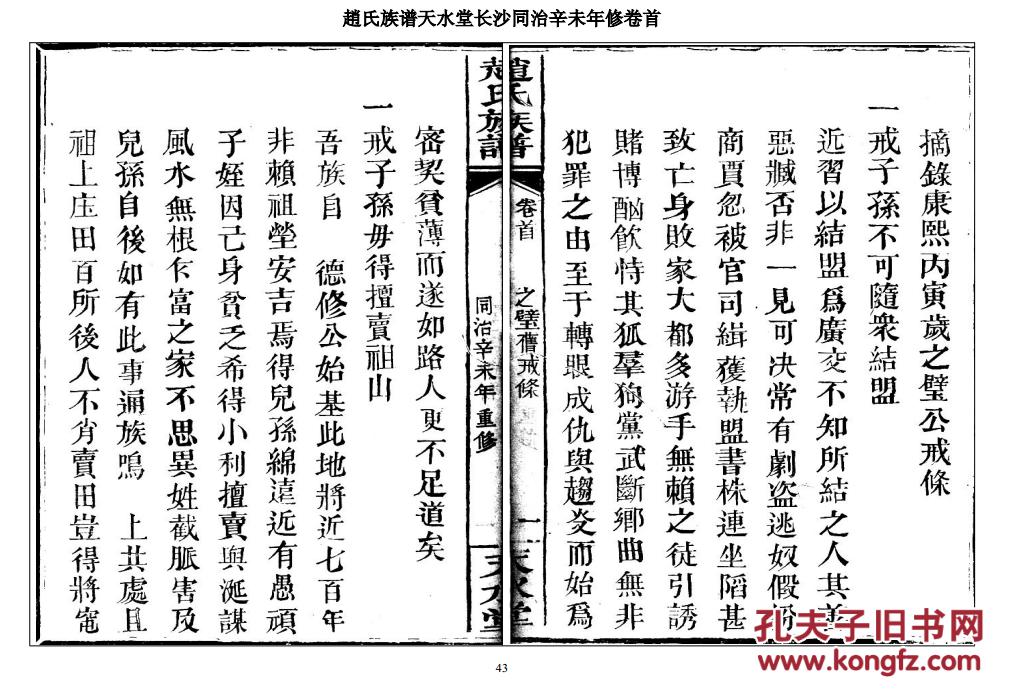 趙氏族谱天水堂长沙同治辛未年修卷首
摘錄康熙丙寅歲之璧公戒條
一戒子孫不可隨衆結盟
近習以結盟爲廣交不知所結之人其善
惡臧否非一見可决常有劇盗逃奴假扮
商賈忽被官司緝獲執盟書株連坐陷甚
致亡身敗家大都多游手無賴之徒引誘
賭博酗飲恃其狐羣狗黨武斷鄉曲無非
犯罪之由至于轉眼成仇與趨炎而始爲
趙氏族譜
卷首
之璧舊戒條
一
天水堂
同治辛未年重修
密契貧薄而遂如路人更不足道矣
一戒子孫毋得擅賣祖山
吾族自 德修公始基此地將近七百年
非賴祖塋安吉焉得兒孫綿遠近有愚頑
子姪因己身貧乏希得小利擅賣與涎謀
風水無根乍富之家不思異姓截脈害及
兒孫自後如有此事通族鳴 上共處且
祖上庄田百所後人不肖賣田豈得將竃
43
孔夫子旧书网
www.kongfz.com